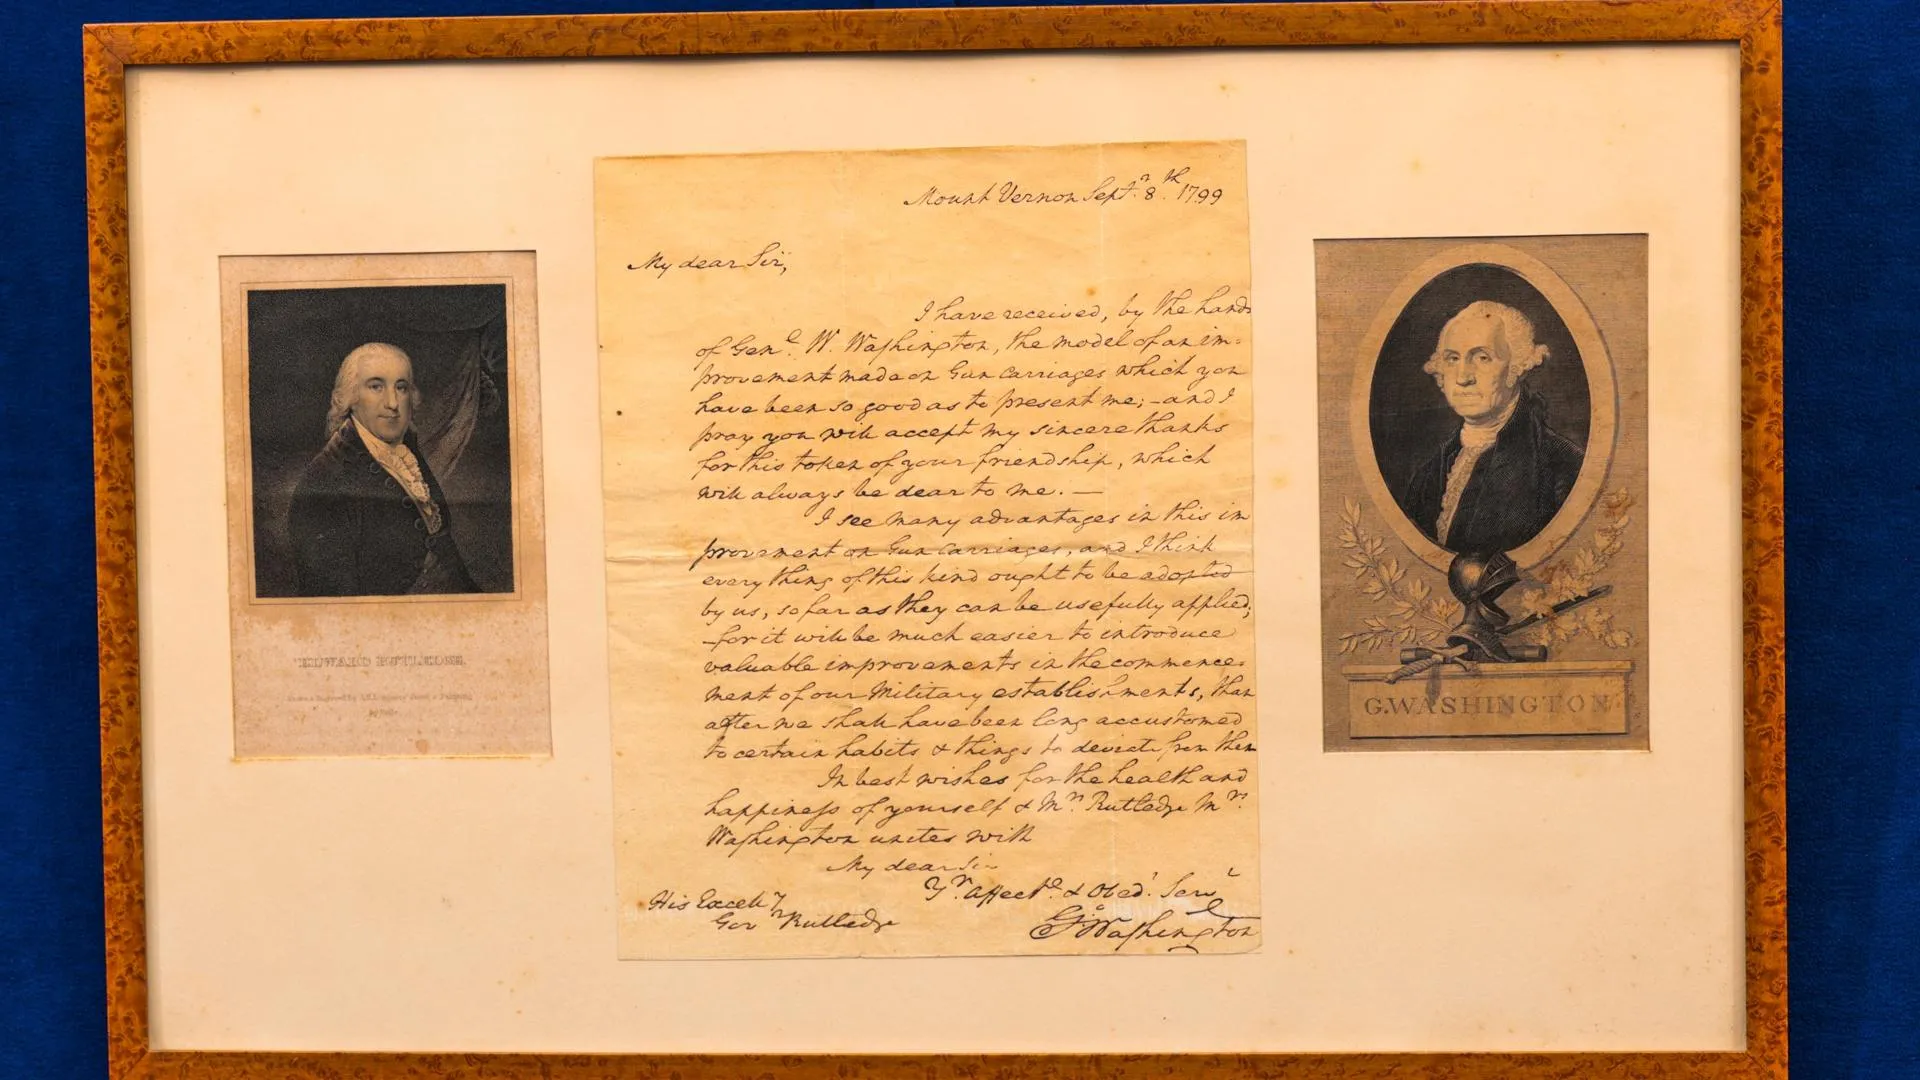 Mount Vernon Sepr. 8th. 1799
My dear Sir,
I have received, by the hands
of Genl. W. Washington, the model of an im-
provement made on Gun Carriages which you
have been so good as to present me; – and I
pray you will accept my sincere thanks
for this token of your friendship, which
will always be dear to me. —
I see many advantages in this im
provement on Gun Carriages, and I think
every thing of this kind ought to be adopted
by us, so far as they can be usefully applied;
– for it will be much easier to introduce
valuable improvements in the commence-
ment of our Military establishments, than
after we shall have been long accustomed
to certain habits & things to deviate from them
In best wishes for the health and
happiness of yourself & Mrs. Rutledge Mrs.
Washington unites with
My dear Sir
Yr. Affecte. & Obed. Servt
Go Washington
His Excelly
Govr Rutledge
EDWARD RUTLEDGE.
G. WASHINGTON